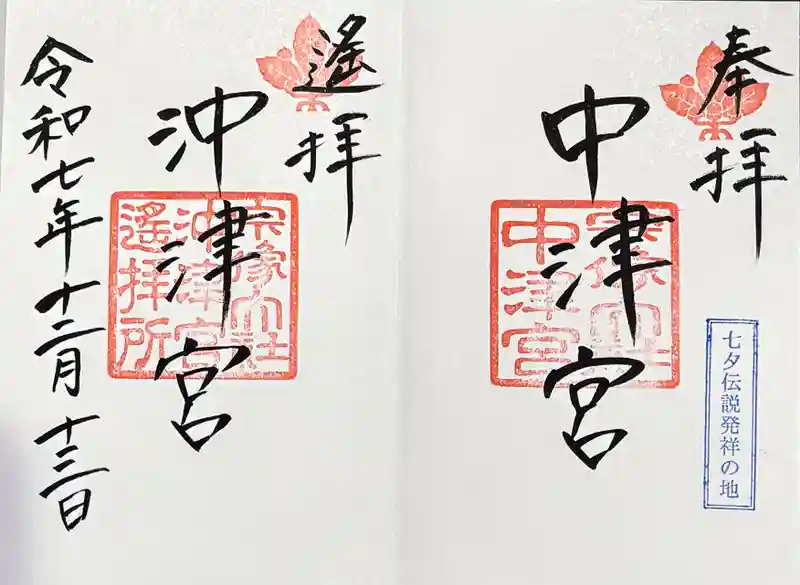 奉拝
中津宮
宗像大社
中津宮
七夕伝説発祥の地
遙拝
沖津宮
宗像大社
沖津宮
遙拝所
令和七年十二月十三日